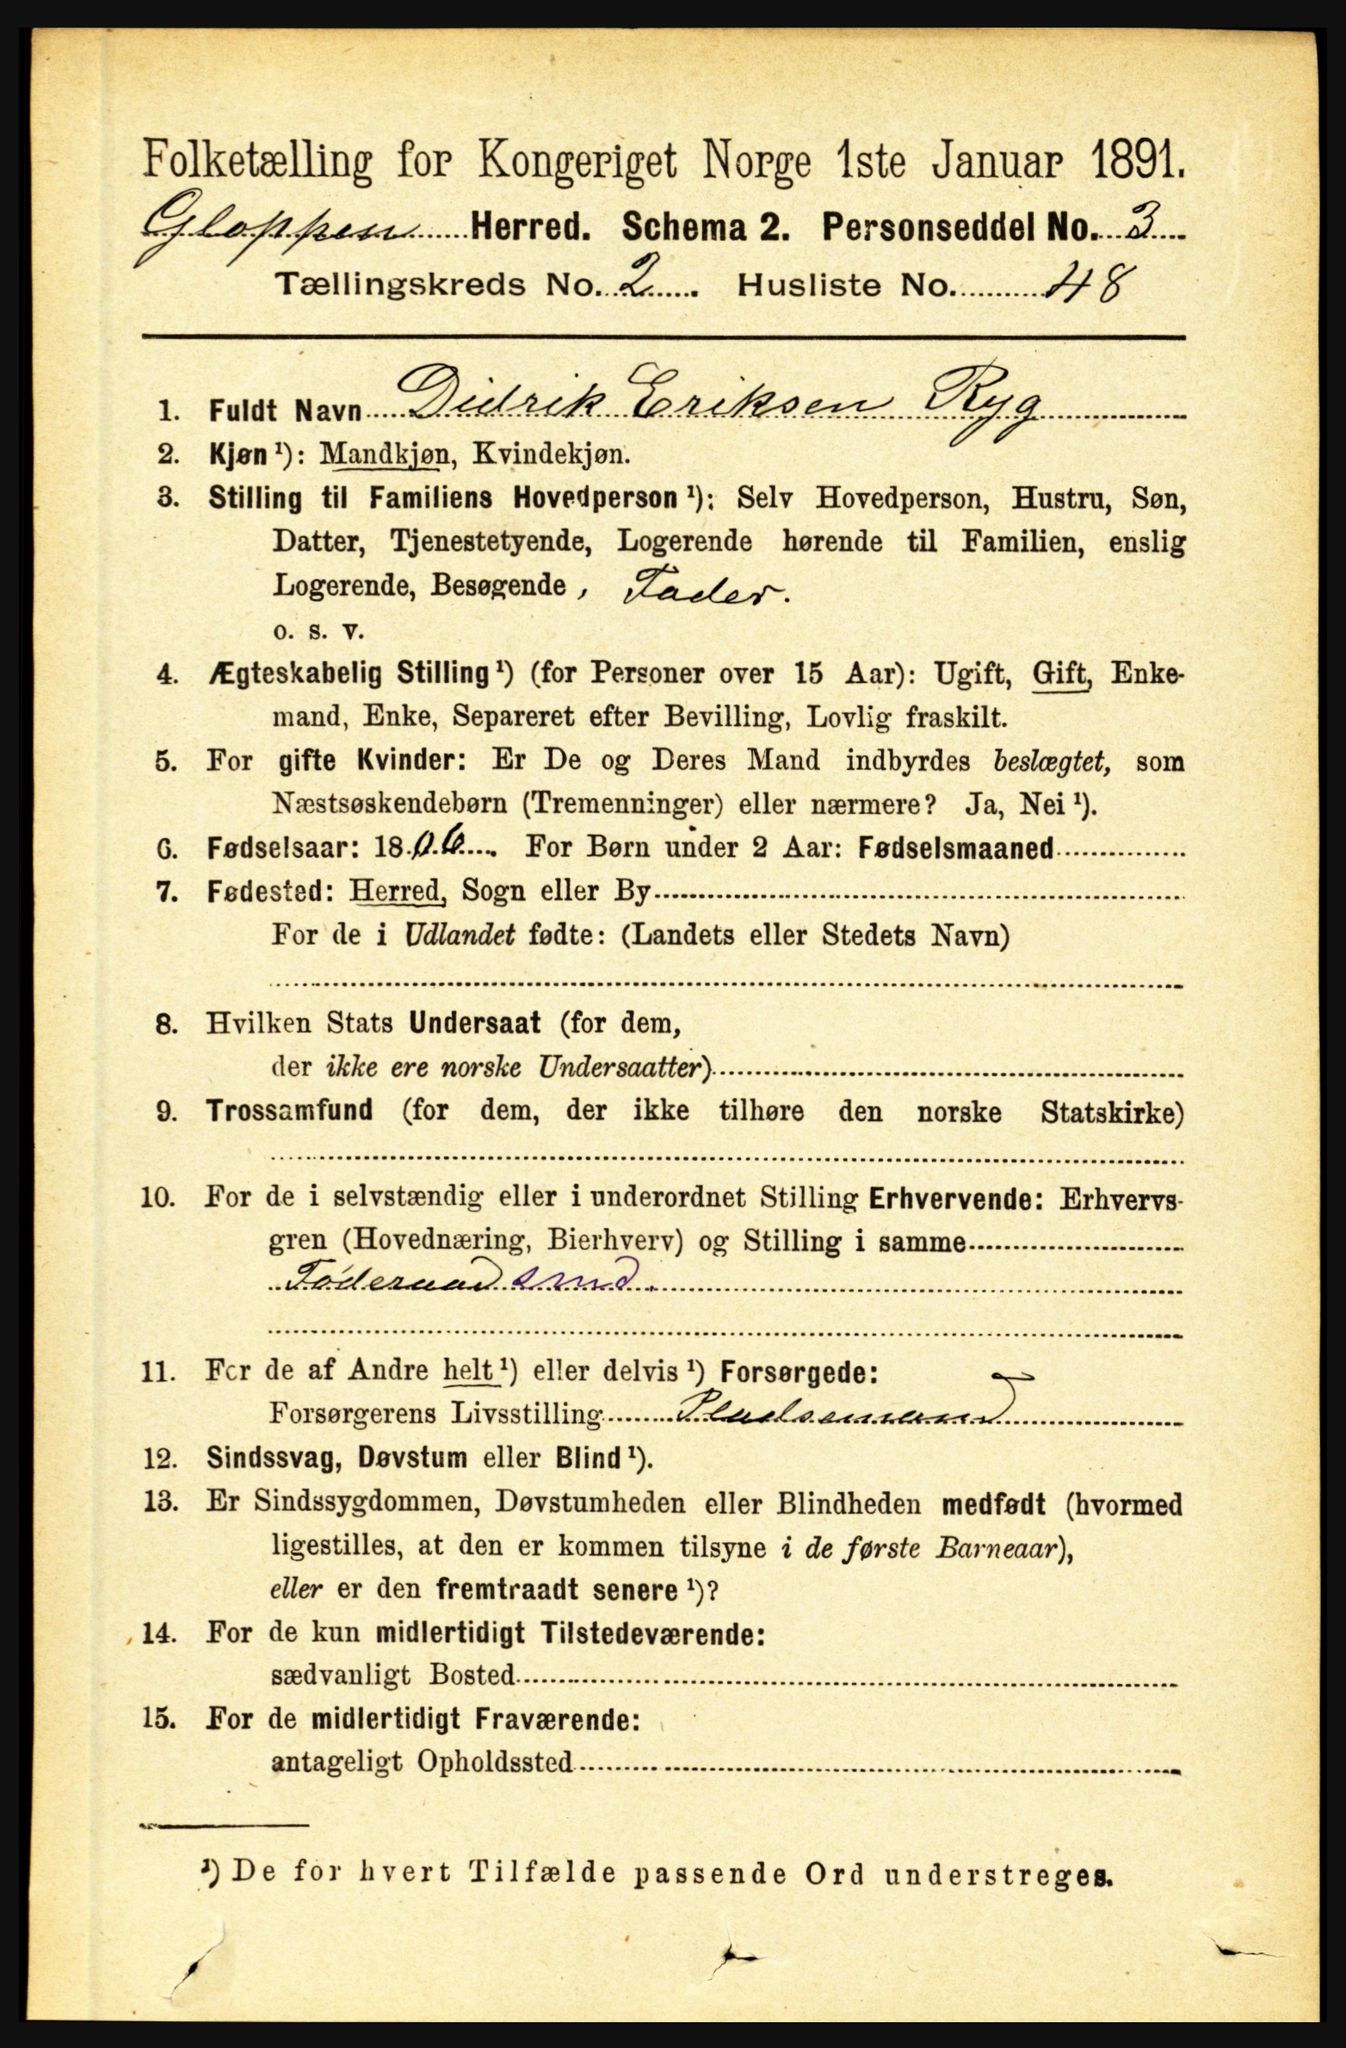 Folketælling for Kongeriget Norge 1ste Januar 1891.
Gloppen Herred. Schema 2. Personseddel No. 3
Tællingskreds No. 2. Husliste No. 48
1. Fuldt Navn Didrik Eriksen Ryg
2. Kjøn ¹): Mandkjøn, Kvindekjøn.
3. Stilling til Familiens Hovedperson ¹): Selv Hovedperson, Hustru, Søn,
Datter, Tjenestetyende, Logerende hørende til Familien, enslig
Logerende, Besøgende, Fader.
o. s. v.
4. Ægteskabelig Stilling ¹) (for Personer over 15 Aar): Ugift, Gift, Enke-
mand, Enke, Separeret efter Bevilling, Lovlig fraskilt.
5. For gifte Kvinder: Er De og Deres Mand indbyrdes beslægtet, som
Næstsøskendebørn (Tremenninger) eller nærmere? Ja, Nei ¹).
6. Fødselsaar: 1806. For Børn under 2 Aar: Fødselsmaaned
7. Fødested: Herred, Sogn eller By
For de i Udlandet fødte: (Landets eller Stedets Navn)
8. Hvilken Stats Undersaat (for dem,
der ikke ere norske Undersaatter)
9. Trossamfund (for dem, der ikke tilhøre den norske Statskirke)
10. For de i selvstændig eller i underordnet Stilling Erhvervende: Erhvervs-
gren (Hovednæring, Bierhverv) og Stilling i samme
Föderaadsmd.
11. For de af Andre helt ¹) eller delvis ¹) Forsørgede:
Forsørgerens Livsstilling Pladsemand
12. Sindssvag, Døvstum eller Blind ¹).
13. Er Sindssygdommen, Døvstumheden eller Blindheden medfødt (hvormed
ligestilles, at den er kommen tilsyne i de første Barneaar),
eller er den fremtraadt senere ¹)?
14. For de kun midlertidigt Tilstedeværende:
sædvanligt Bosted
15. For de midlertidigt Fraværende:
antageligt Opholdssted
¹) De for hvert Tilfælde passende Ord understreges.